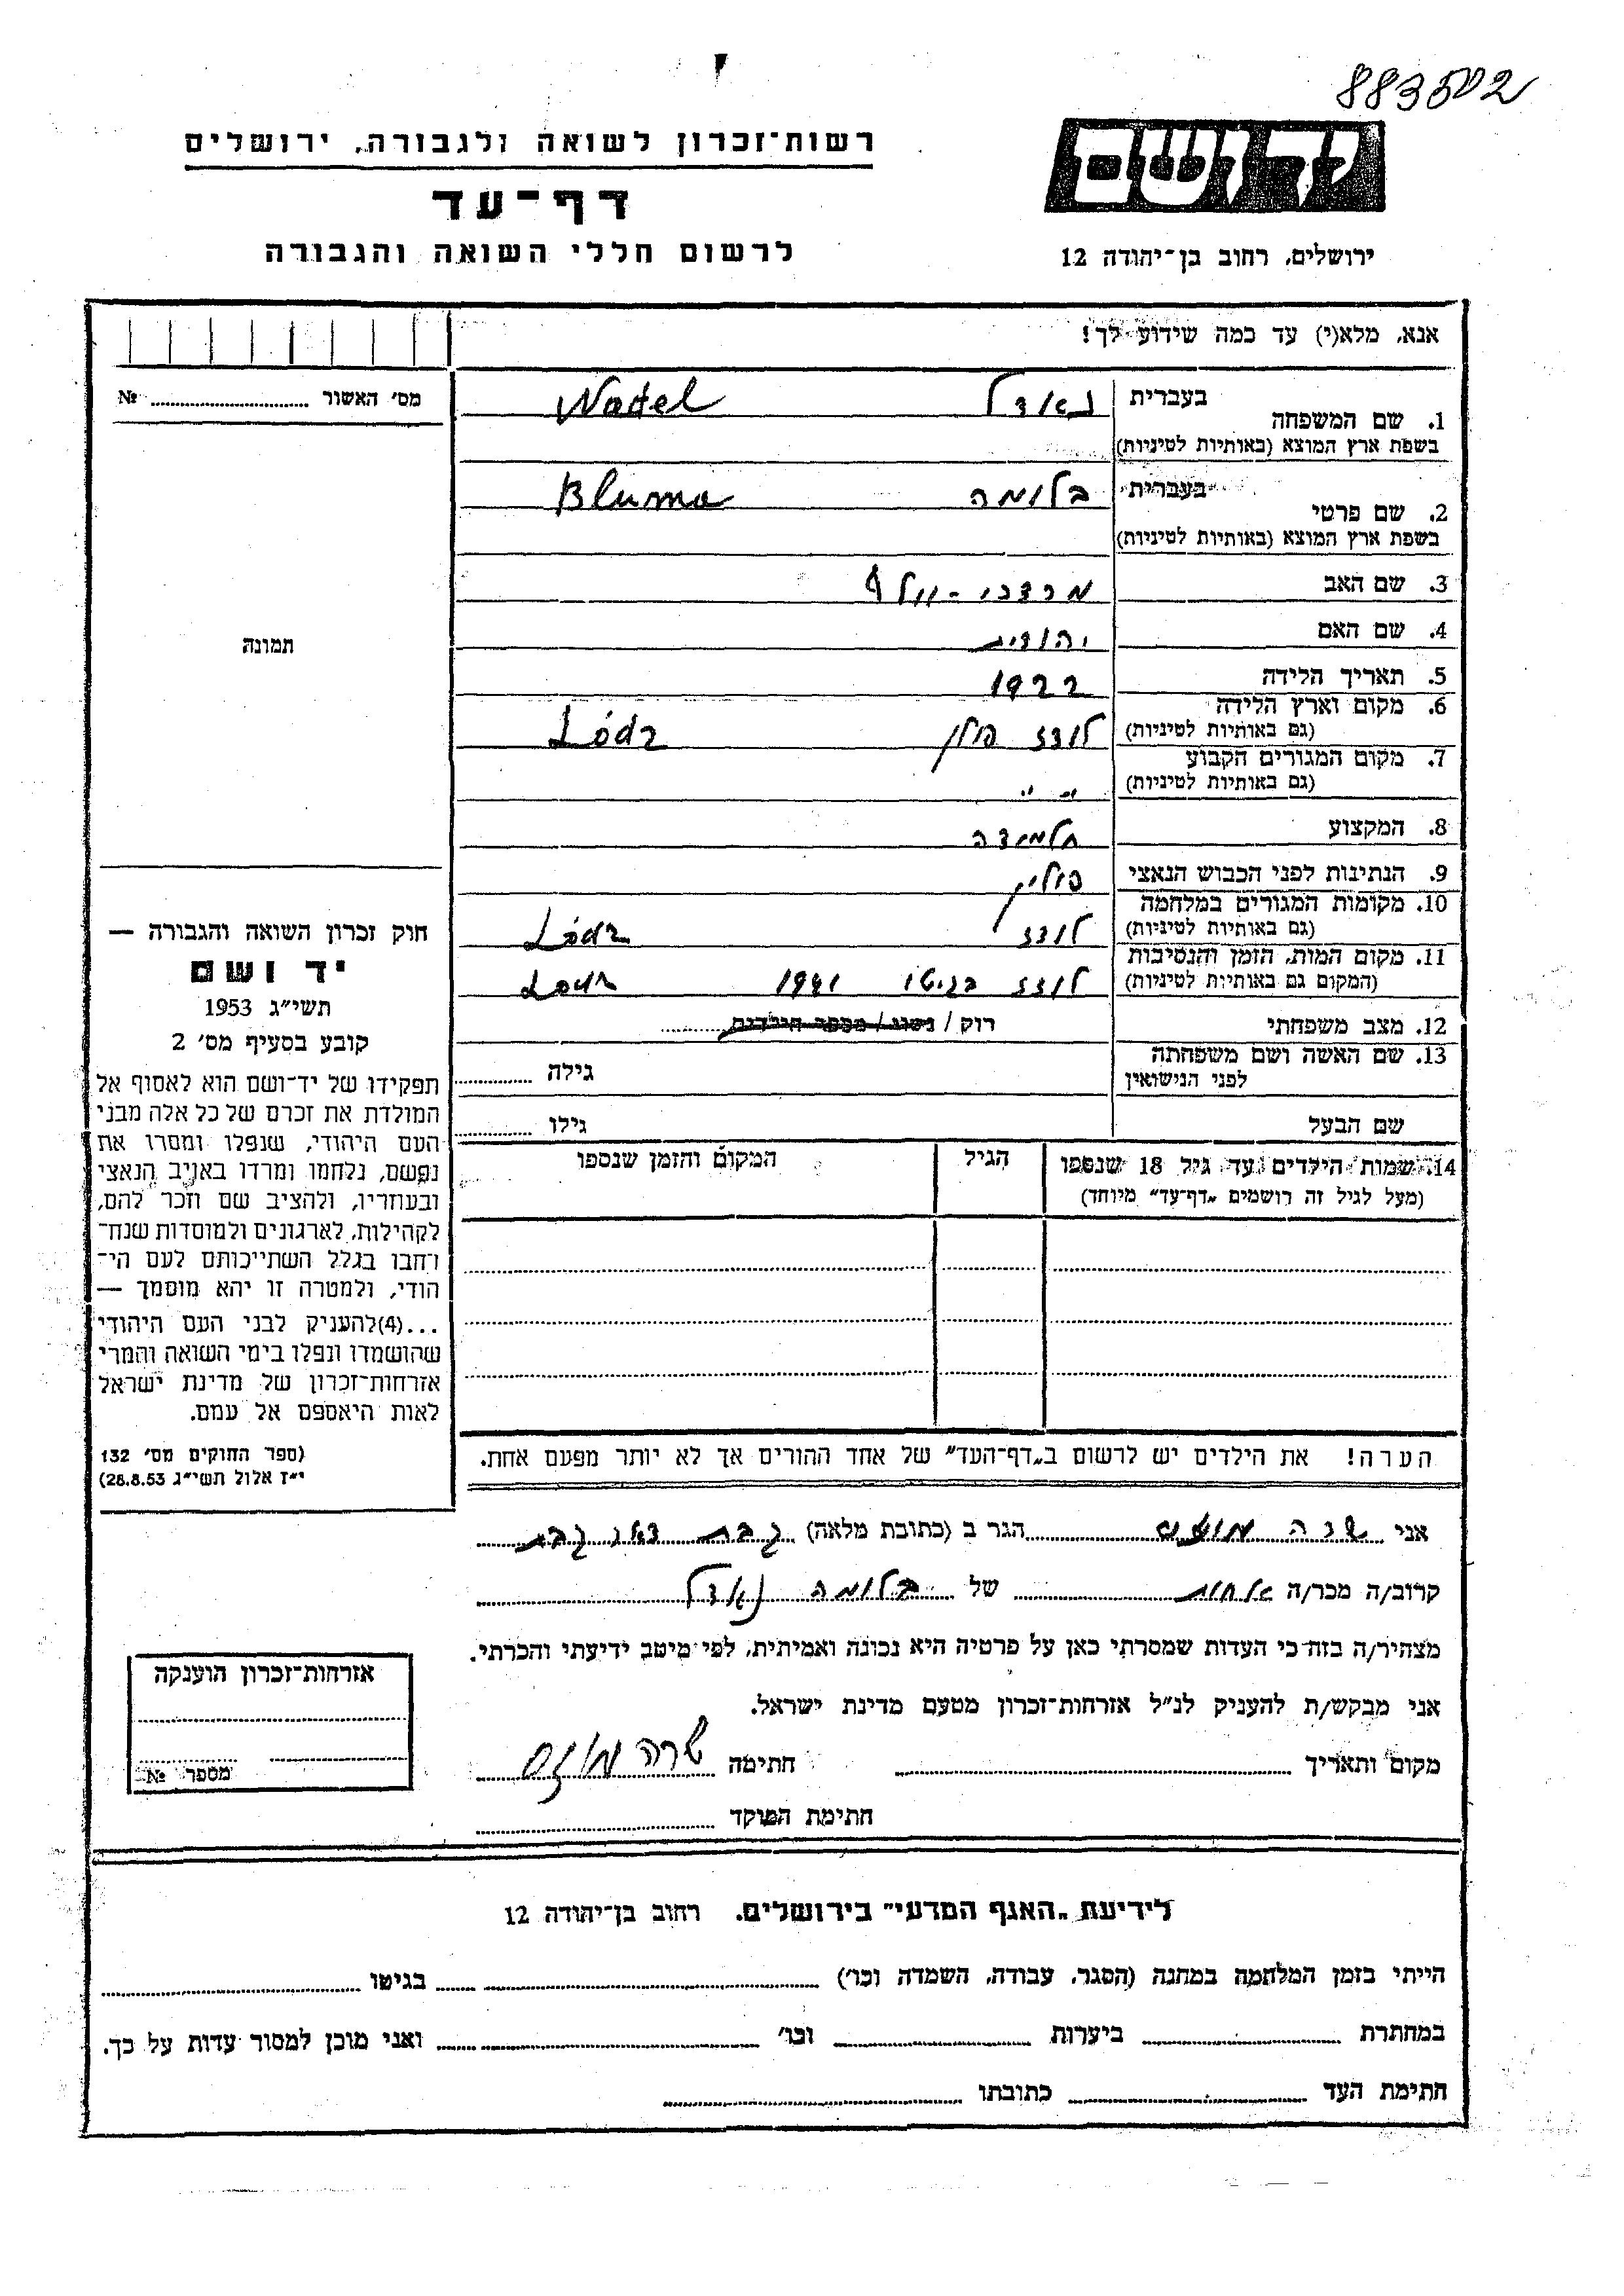 883502
רשות־זכרון לשואה ולגבורה, ירושלים
יד ושם
דף־עד
לרשום חללי השואה והגבורה
ירושלים, רחוב בן־יהודה 12
אנא, מלא(י) עד כמה שידוע לך!
מס' האשור № ........
1. שם המשפחה בעברית נאדל Nadel
בשפת ארץ המוצא (באותיות לטיניות)
2. שם פרטי בעברית בלומה Bluma
בשפת ארץ המוצא (באותיות לטיניות)
3. שם האב מרדכי - וולף
4. שם האם יהודית
תמונה
5. תאריך הלידה 1922
6. מקום וארץ הלידה לודז פולין Lódz
(גם באותיות לטיניות)
7. מקום המגורים הקבוע
(גם באותיות לטיניות) " - "
8. המקצוע תלמידה
9. הנתינות לפני הכבוש הנאצי פולין
10. מקומות המגורים במלחמה
(גם באותיות לטיניות) לודז Lódz
11. מקום המות, הזמן והנסיבות
(המקום גם באותיות לטיניות) לודז בגיטו 1941 Lodz
12. מצב משפחתי רוק / נשוי / מספר הילדים........
13. שם האשה ושם משפחתה גילה ........
לפני הנישואין
שם הבעל גילו ........
14. שמות הילדים עד גיל 18 שנספו הגיל המקום והזמן שנספו
(מעל לגיל זה רושמים "דף־עד" מיוחד)
חוק זכרון השואה והגבורה —
יד ושם
תשי"ג 1953
קובע בסעיף מס' 2
תפקידו של יד־ושם הוא לאסוף אל
המולדת את זכרם של כל אלה מבני
העם היהודי, שנפלו ומסרו את
נפשם, נלחמו ומרדו באויב הנאצי
ובעוזריו, ולהציב שם וזכר להם,
לקהילות, לארגונים ולמוסדות שנח־
רחבו בגלל השתייכותם לעם הי־
הודי, ולמטרה זו יהא מוסמך —
...(4)להעניק לבני העם היהודי
שהושמדו ונפלו בימי השואה והמרי
אזרחות־זכרון של מדינת ישראל
לאות היאספם אל עמם.
(ספר החוקים מס' 132
י"ז אלול תשי"ג 28.8.53)
הערה! את הילדים יש לרשום ב"דף־העד" של אחד ההורים אך לא יותר מפעם אחת.
אני שרה הגר ב (כתובת מלאה)
קרוב/ה מכר/ה אחות של בלומה נאדל
מצהיר/ה בזה כי העדות שמסרתי כאן על פרטיה היא נכונה ואמיתית, לפי מיטב ידיעתי והכרתי.
אני מבקש/ת להעניק לנ"ל אזרחות־זכרון מטעם מדינת ישראל.
מקום ותאריך חתימה שרה
חתימת הפוקד
אזרחות־זכרון הוענקה
מספר №
לידיעת "האגף המדעי" בירושלים, רחוב בן־יהודה 12
הייתי בזמן המלחמה במחנה (הסגר, עבודה, השמדה וכו') בגיטו
במחתרת ביערות וכו' ואני מוכן למסור עדות על כך.
חתימת העד כתובתו